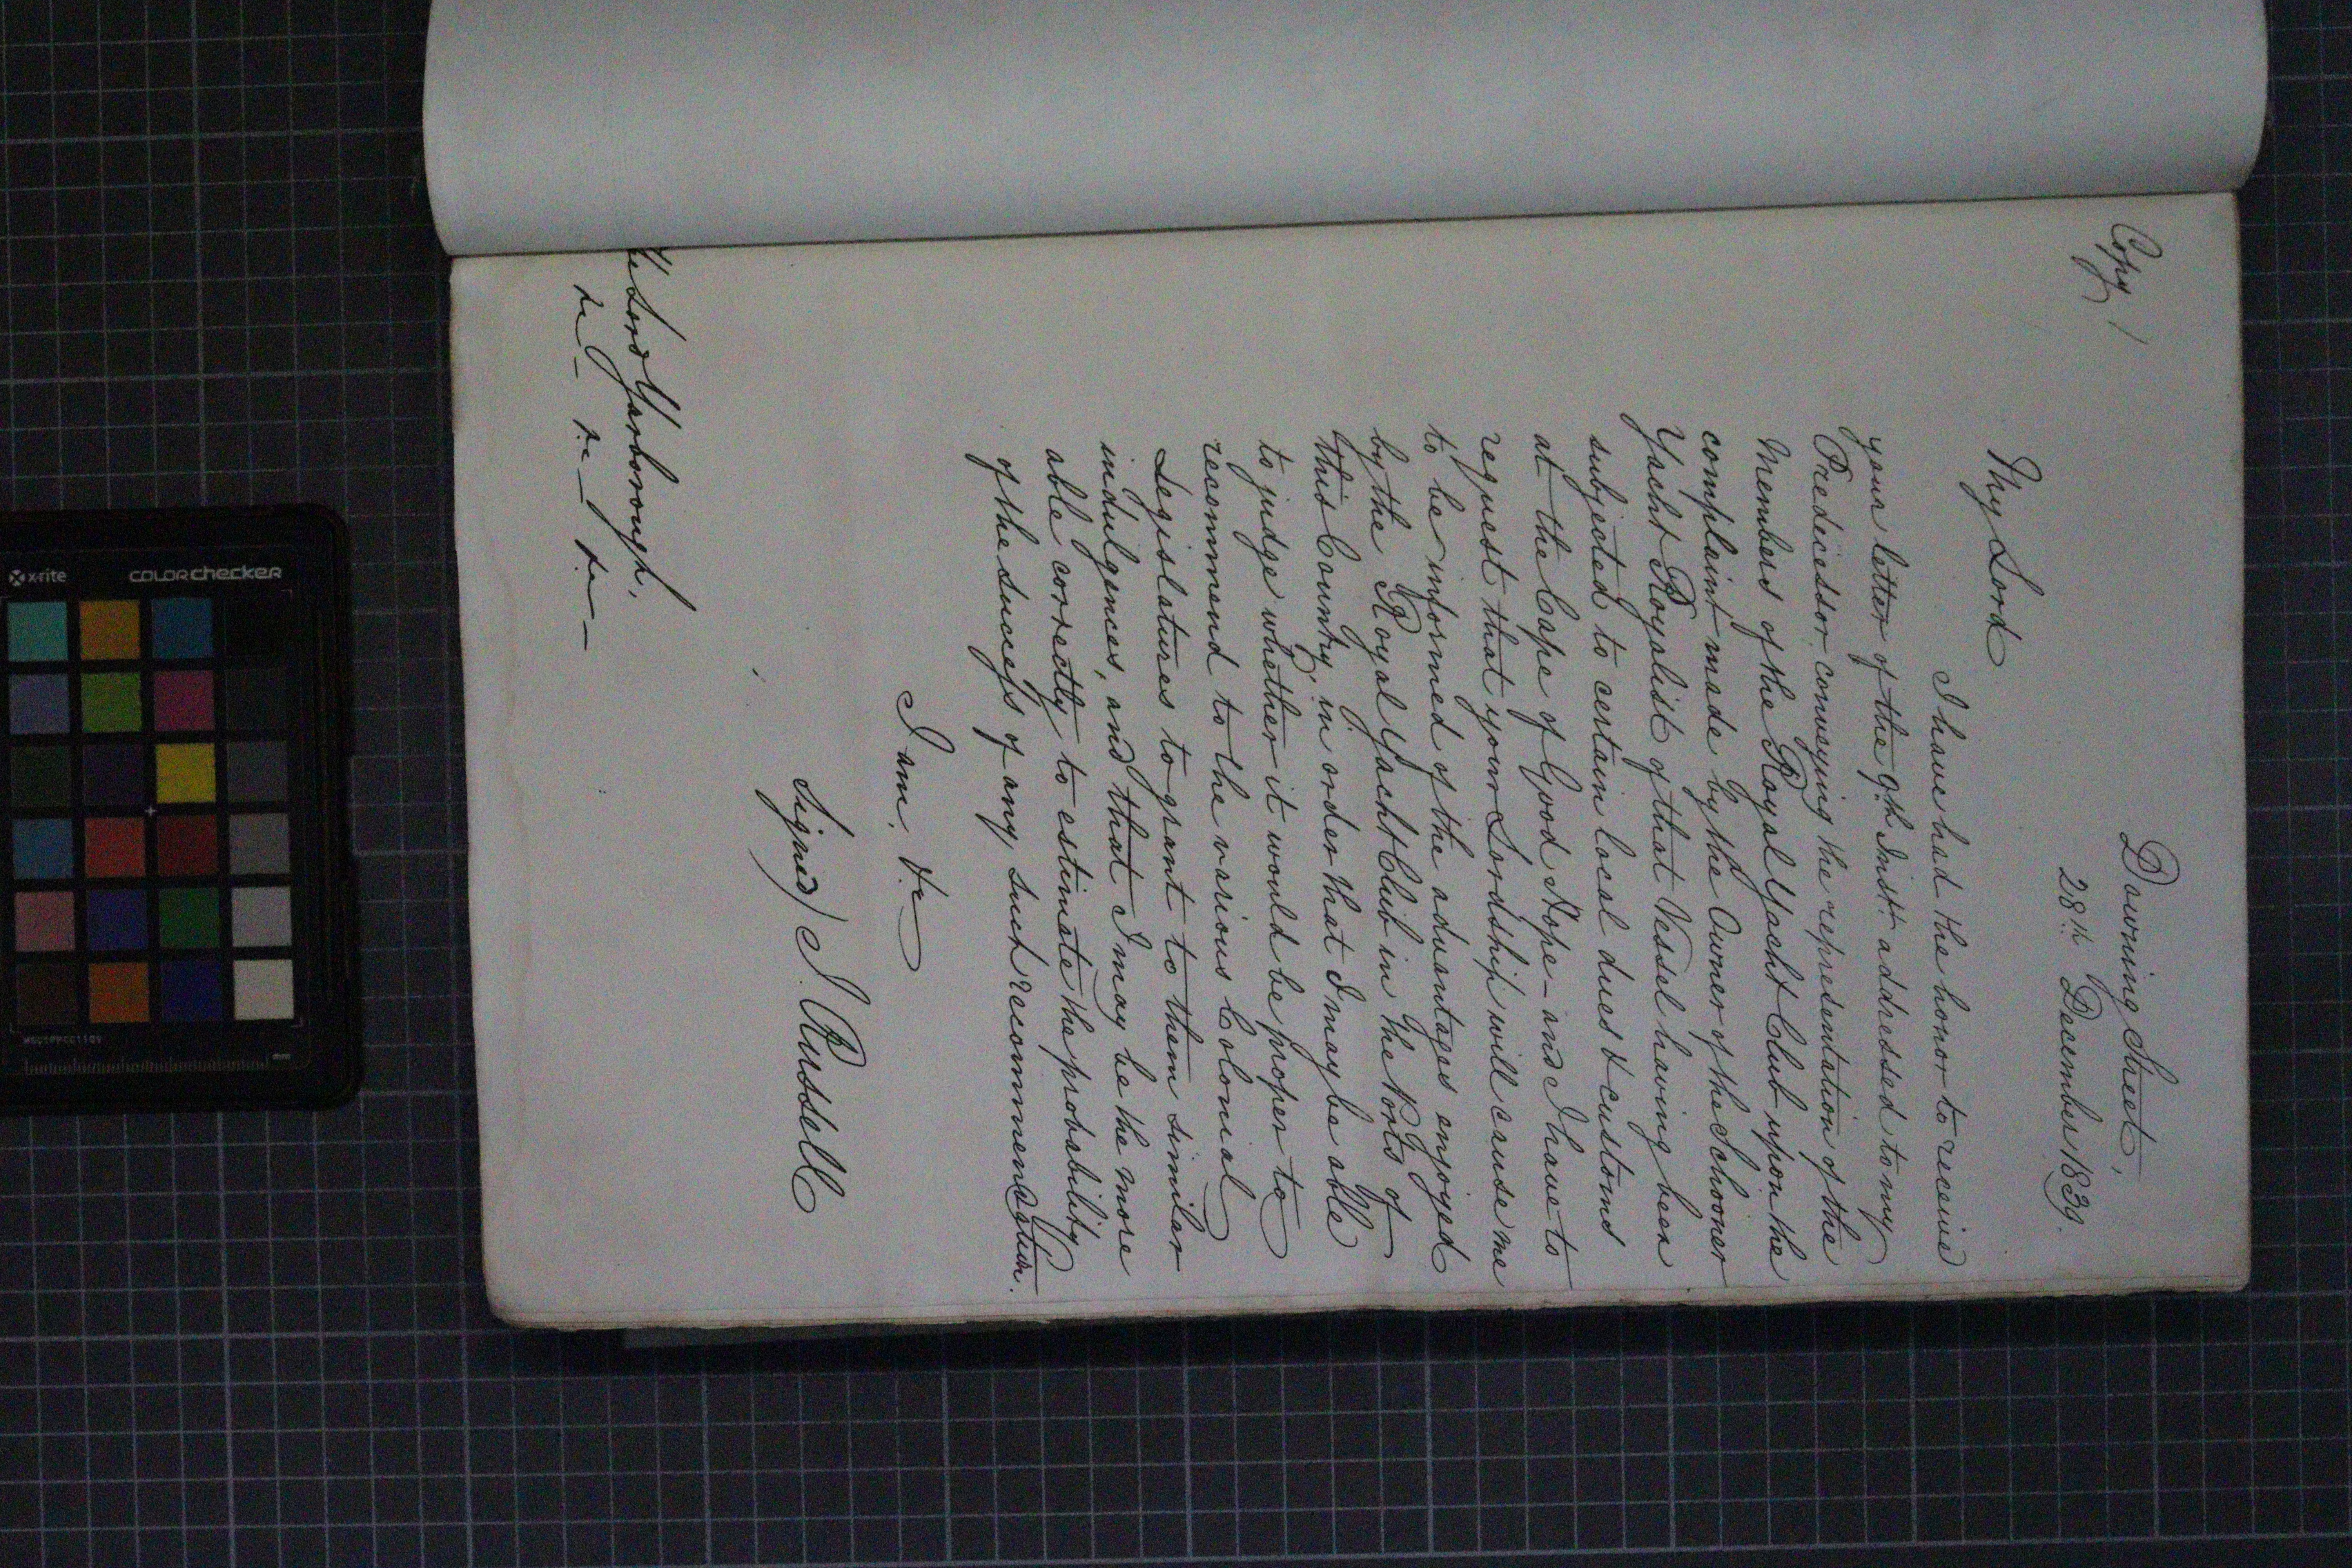 Copy /
Downing Street,
28th December 1839.
My Lord
I have had the honor to receive
your letter of the 9th Instt addressed to my
Predecessor conveying the representation of the
Members of the Royal Yacht Club upon the
complaint made by the Owner of the Schooner
Yacht Royalist of that Vessel having been
subjected to certain local dues & customs
at the Cape of Good Hope - and I have to
request that your Lordship will cause me
to be informed of the advantages enjoyed
by the Royal Yacht Club in the Ports of
this Country, in order that I may be able
to judge whether it would be proper to
recommend to the various Colonial
Legislatures to grant to them similar
indulgences, and that I may be the more
able correctly to estimate the probability
of the success of any such recommendation.
I am, &c
Signed) J. Russell
The Lord Yarborough,
&c - &c - &c -
x-rite colorchecker
mm